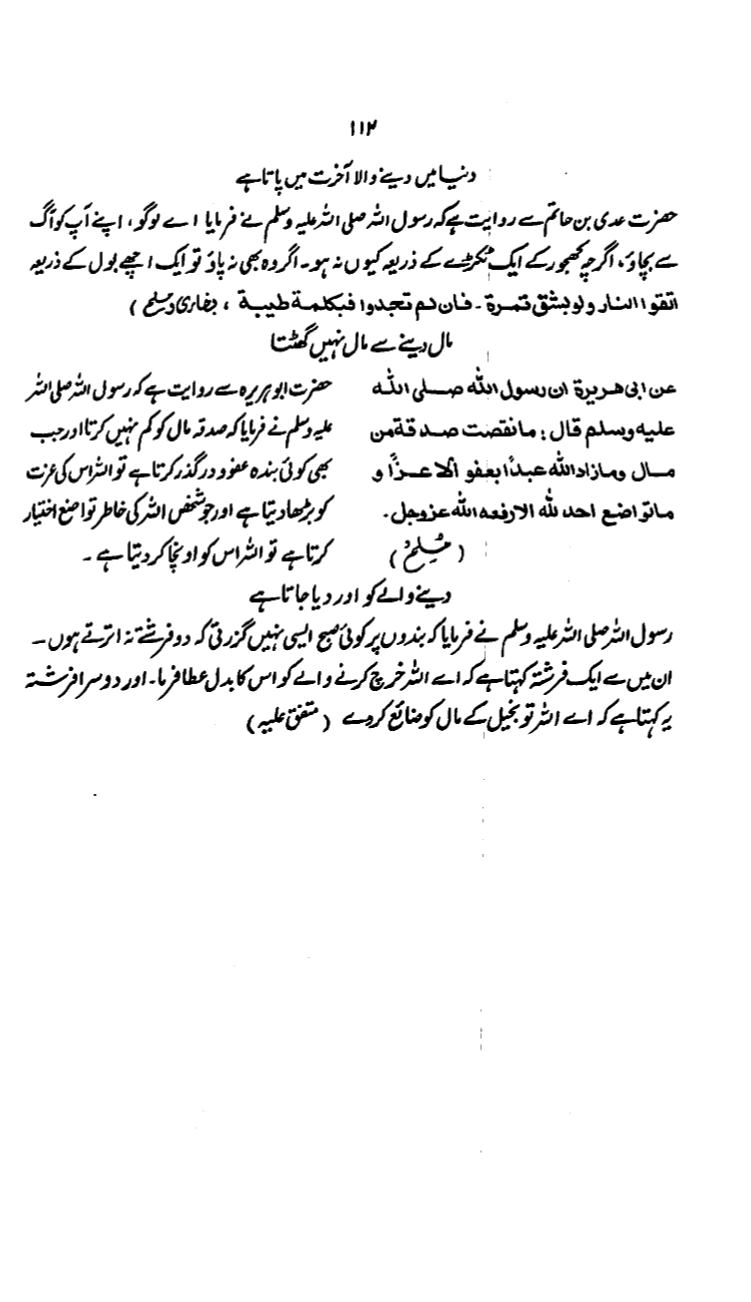 ۱۱۲
دنیا میں دینے والا آخرت میں پاتا ہے
حضرت عدی بن حاتم سے روایت ہے کہ رسول اللہ صلی اللہ علیہ وسلم نے فرمایا اے لوگو، اپنے آپ کو آگ
سے بچاؤ، اگرچہ کھجور کے ایک ٹکڑے کے ذریعہ کیوں نہ ہو۔ اگر وہ بھی نہ پاؤ تو ایک اچھے بول کے ذریعہ
اتقوا النار ولو بشق تمرة ۔ فان لم تجدوا فبكلمة طيبة ، (بخاری ومسلم)
مال دینے سے مال نہیں گھٹتا
عن ابی هريرة ان رسول الله صلى الله
عليه وسلم قال : ما نقصت صدقة من
مال وما زاد الله عبدًا بعفو الا عزًا و
ما تواضع احد لله الا رفعه الله عز وجل۔
(مسلم)
حضرت ابو ہریرہ سے روایت ہے کہ رسول اللہ صلی اللہ
علیہ وسلم نے فرمایا کہ صدقہ مال کو کم نہیں کرتا اور جب
بھی کوئی بندہ عفو و درگذر کرتا ہے تو اللہ اس کی عزت
کو بڑھا دیتا ہے اور جو شخص اللہ کی خاطر تواضع اختیار
کرتا ہے تو اللہ اس کو اونچا کر دیتا ہے ۔
دینے والے کو اور دیا جاتا ہے
رسول اللہ صلی اللہ علیہ وسلم نے فرمایا کہ بندوں پر کوئی صبح ایسی نہیں گزرتی کہ دو فرشتے نہ اترتے ہوں ۔
ان میں سے ایک فرشتہ کہتا ہے کہ اے اللہ خرچ کرنے والے کو اس کا بدل عطا فرما۔ اور دوسرا فرشتہ
یہ کہتا ہے کہ اے اللہ تو بخیل کے مال کو ضائع کر دے (متفق علیہ)